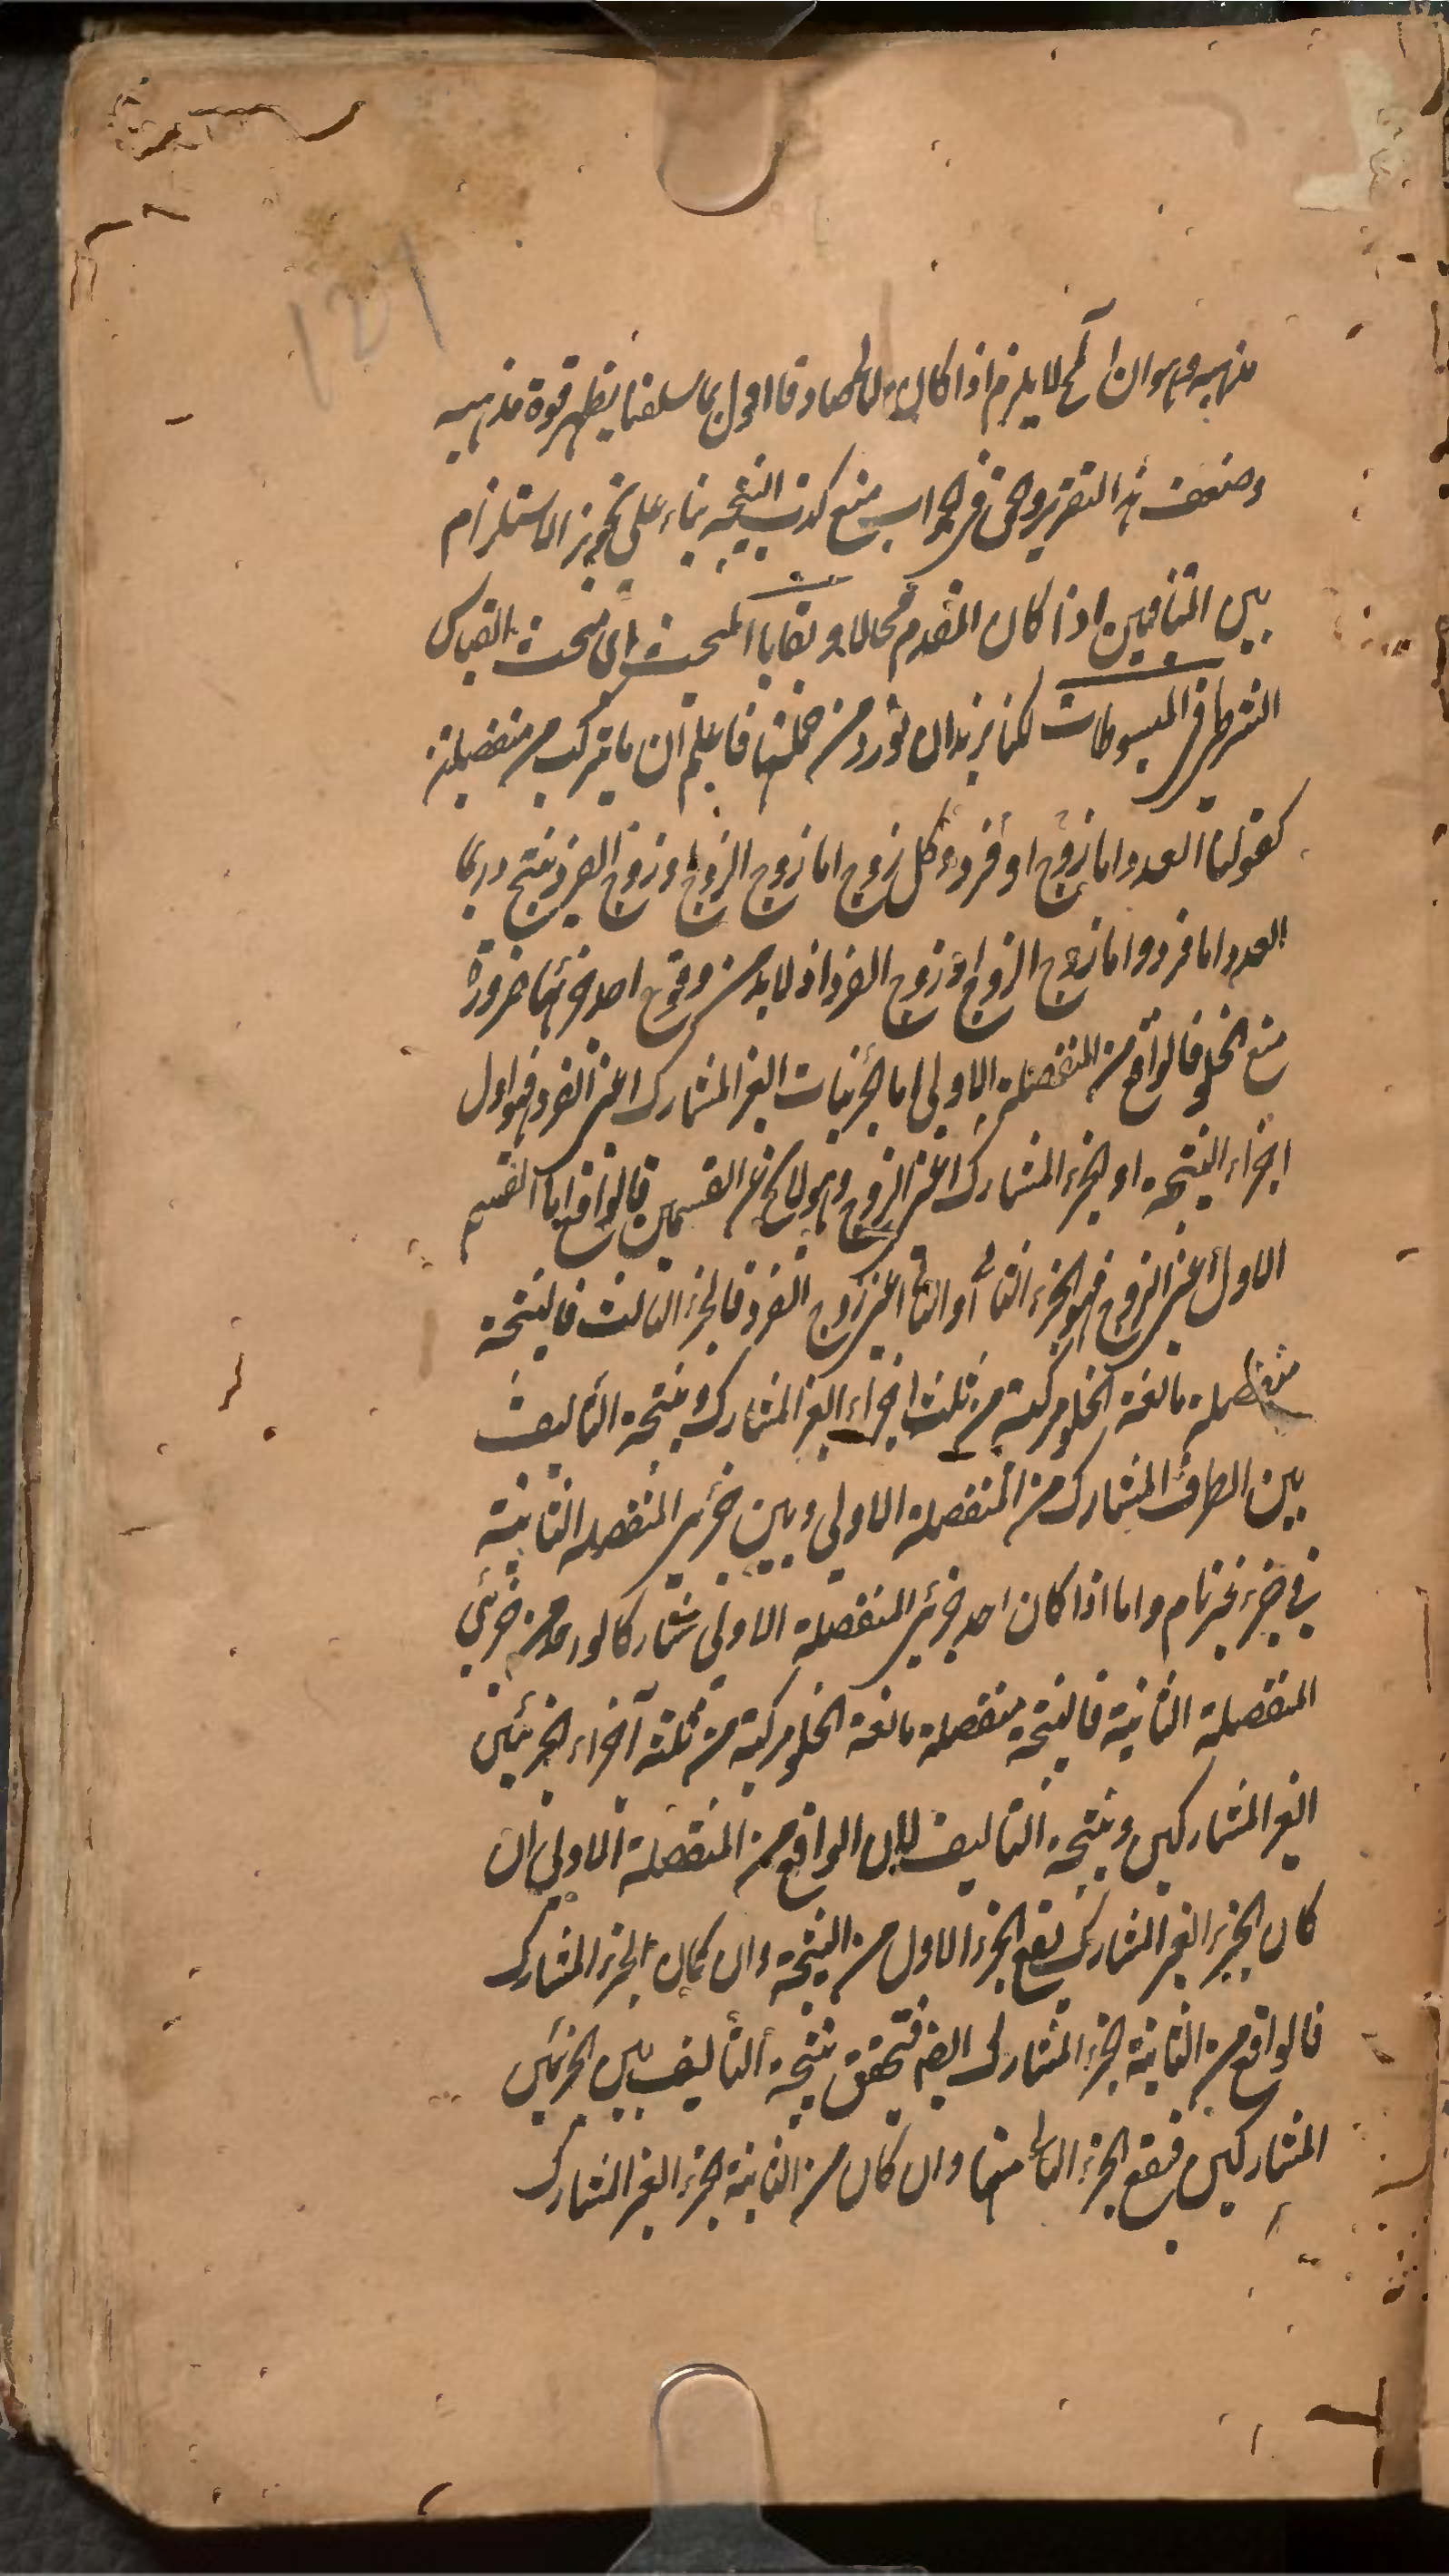 121
مذهبه وهو ان المح لا يلزم اذا كان صادقا اقول بما سلفنا يظهر قوة مذهبه
وضعف هذا التقرير والحق في الجواب منع كذب النتيجة بناء على تجويز الاستلزام
بين المتنافيين اذا كان المقدم محالا وبقايا المبحث اى مبحث القياس
الشرطى فى المبسوطات لكنا نريد ان نورد من جملتها فاعلم ان ما يتركب من منفصلتين
كقولنا العدد اما زوج او فرد وكل زوج اما زوج الزوج او زوج الفرد ينتج دائما
العدد اما فرد واما زوج الزوج او زوج الفرد اذ لا بد من وقوع احد جزئها ضرورة
منع الخلو فالواقع من المنفصلة الاولى اما الجزئيات الغير المشارك اعنى الفرد فهو اول
اجزاء النتيجة او الجزء المشارك اعنى الزوج وهو لا يخ عن القسمين فالواقع اما القسم
الاول اعنى الزوج فهو الجزء الثانى او الثانى اعنى زوج الفرد فالجزء الثالث فالنتيجة
منفصلة مانعة الخلو مركبة من ثلث اجزاء الغير المشارك ونتيجة التاليف
بين الطرف المشارك من المنفصلة الاولى وبين جزئى المنفصلة الثانية
فى جزء غير تام واما اذا كان احد جزئى المنفصلة الاولى مشاركا لواحد من جزئى
المنفصلة الثانية فالنتيجة منفصلة مانعة الخلو مركبة من ثلثة اجزاء الجزئين
الغير المشاركين ونتيجة التاليف لان الواقع من المنفصلة الاولى ان
كان الجزء الغير المشارك يقع الجزء الاول من النتيجة وان كان الجزء المشارك
فالواقع من الثانية الجزء المشارك ايضا فتحقق نتيجة التاليف بين الجزئين
المشاركين فيقع الجزء الثانى منها وان كان من الثانية الجزء الغير المشارك